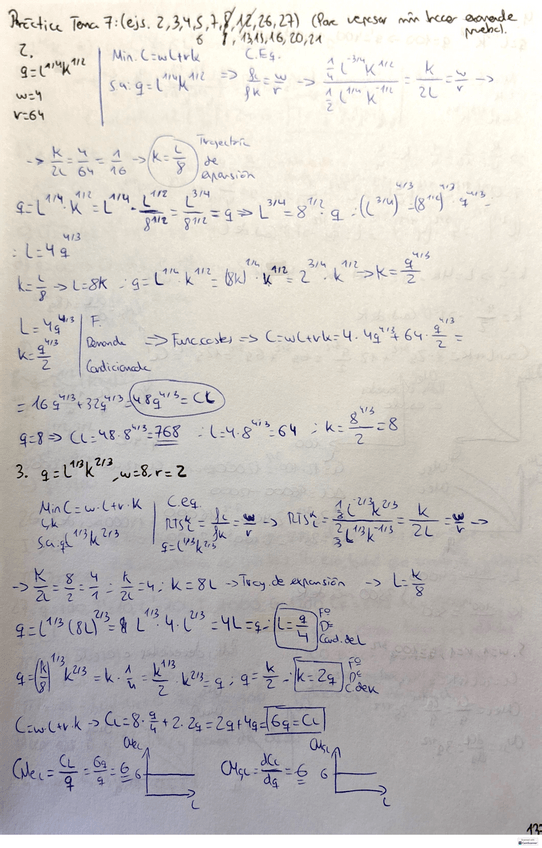 Práctica Tema 7: (ejs. 2, 3, 4, 5, 7, 8, 12, 26, 27) (Para repasar
6 9, 13, 15, 16, 20, 21
2.
q=L^1/4 K^1/2
w=4
r=64
Min. C=wL+rK
s.a: q=L^1/4 K^1/2
C.Eq.
⇒ fL/fK = w/r → (1/4 L^-3/4 K^1/2)/(1/2 L^1/4 K^-1/2) = K/2L = w/r →
→ K/2L = 4/64 = 1/16 → K=L/8 Trayectoria de expansión
q=L^1/4 · K^1/2 = L^1/4 · L^1/2/8^1/2 = L^3/4/8^1/2 = q ⇒ L^3/4 = 8^1/2 · q ; (L^3/4)^4/3 = (8^1/2)^4/3 · q^4/3 =
= L=4q^4/3
K=L/8 → L=8K ; q=L^1/4 K^1/2 = (8K)^1/4 · K^1/2 = 2^3/4 · K^1/2 ⇒ K=q^4/3/2
L=4q^4/3
K=q^4/3/2
F.
Demanda
Condicionada
⇒ Func. costes ⇒ C=wL+rK=4·4q^4/3+64·q^4/3/2 =
=16q^4/3+32q^4/3=48q^4/3=CL
q=8 ⇒ CL=48·8^4/3=768 ; L=4·8^4/3=64 ; K=8^4/3/2=8
3. q=L^1/3 K^2/3, w=8, r=2
Min C=w·L+r·K
L,K
s.a. q=L^1/3 K^2/3
C.eq.
RTS = fL/fK = w/r
q=L^1/3 K^2/3
→ RTS = (1/3 L^-2/3 K^2/3)/(2/3 L^1/3 K^-1/3) = K/2L = w/r →
→ K/2L = 8/2 = 4/1 = K/2L = 4 ; K=8L → Tray. de expansión → L=K/8
q=L^1/3 (8L)^2/3 = 8 L^1/3 · 4 · L^2/3 = 4L = q = L=q/4 Fº Dª Cond. de L
q=(K/8)^1/3 K^2/3 = K · 1/4 = K^1/3/2 · K^2/3 = q ; q=K/2 = K=2q Fº Dª C. de K
C=wL+r·K → CL=8·q/4+2·2q=2q+4q=6q=CL
CMeL=CL/q=6q/q=6
CMeL
6
L
CMgL=dCL/dq=6
CMgL
6
L